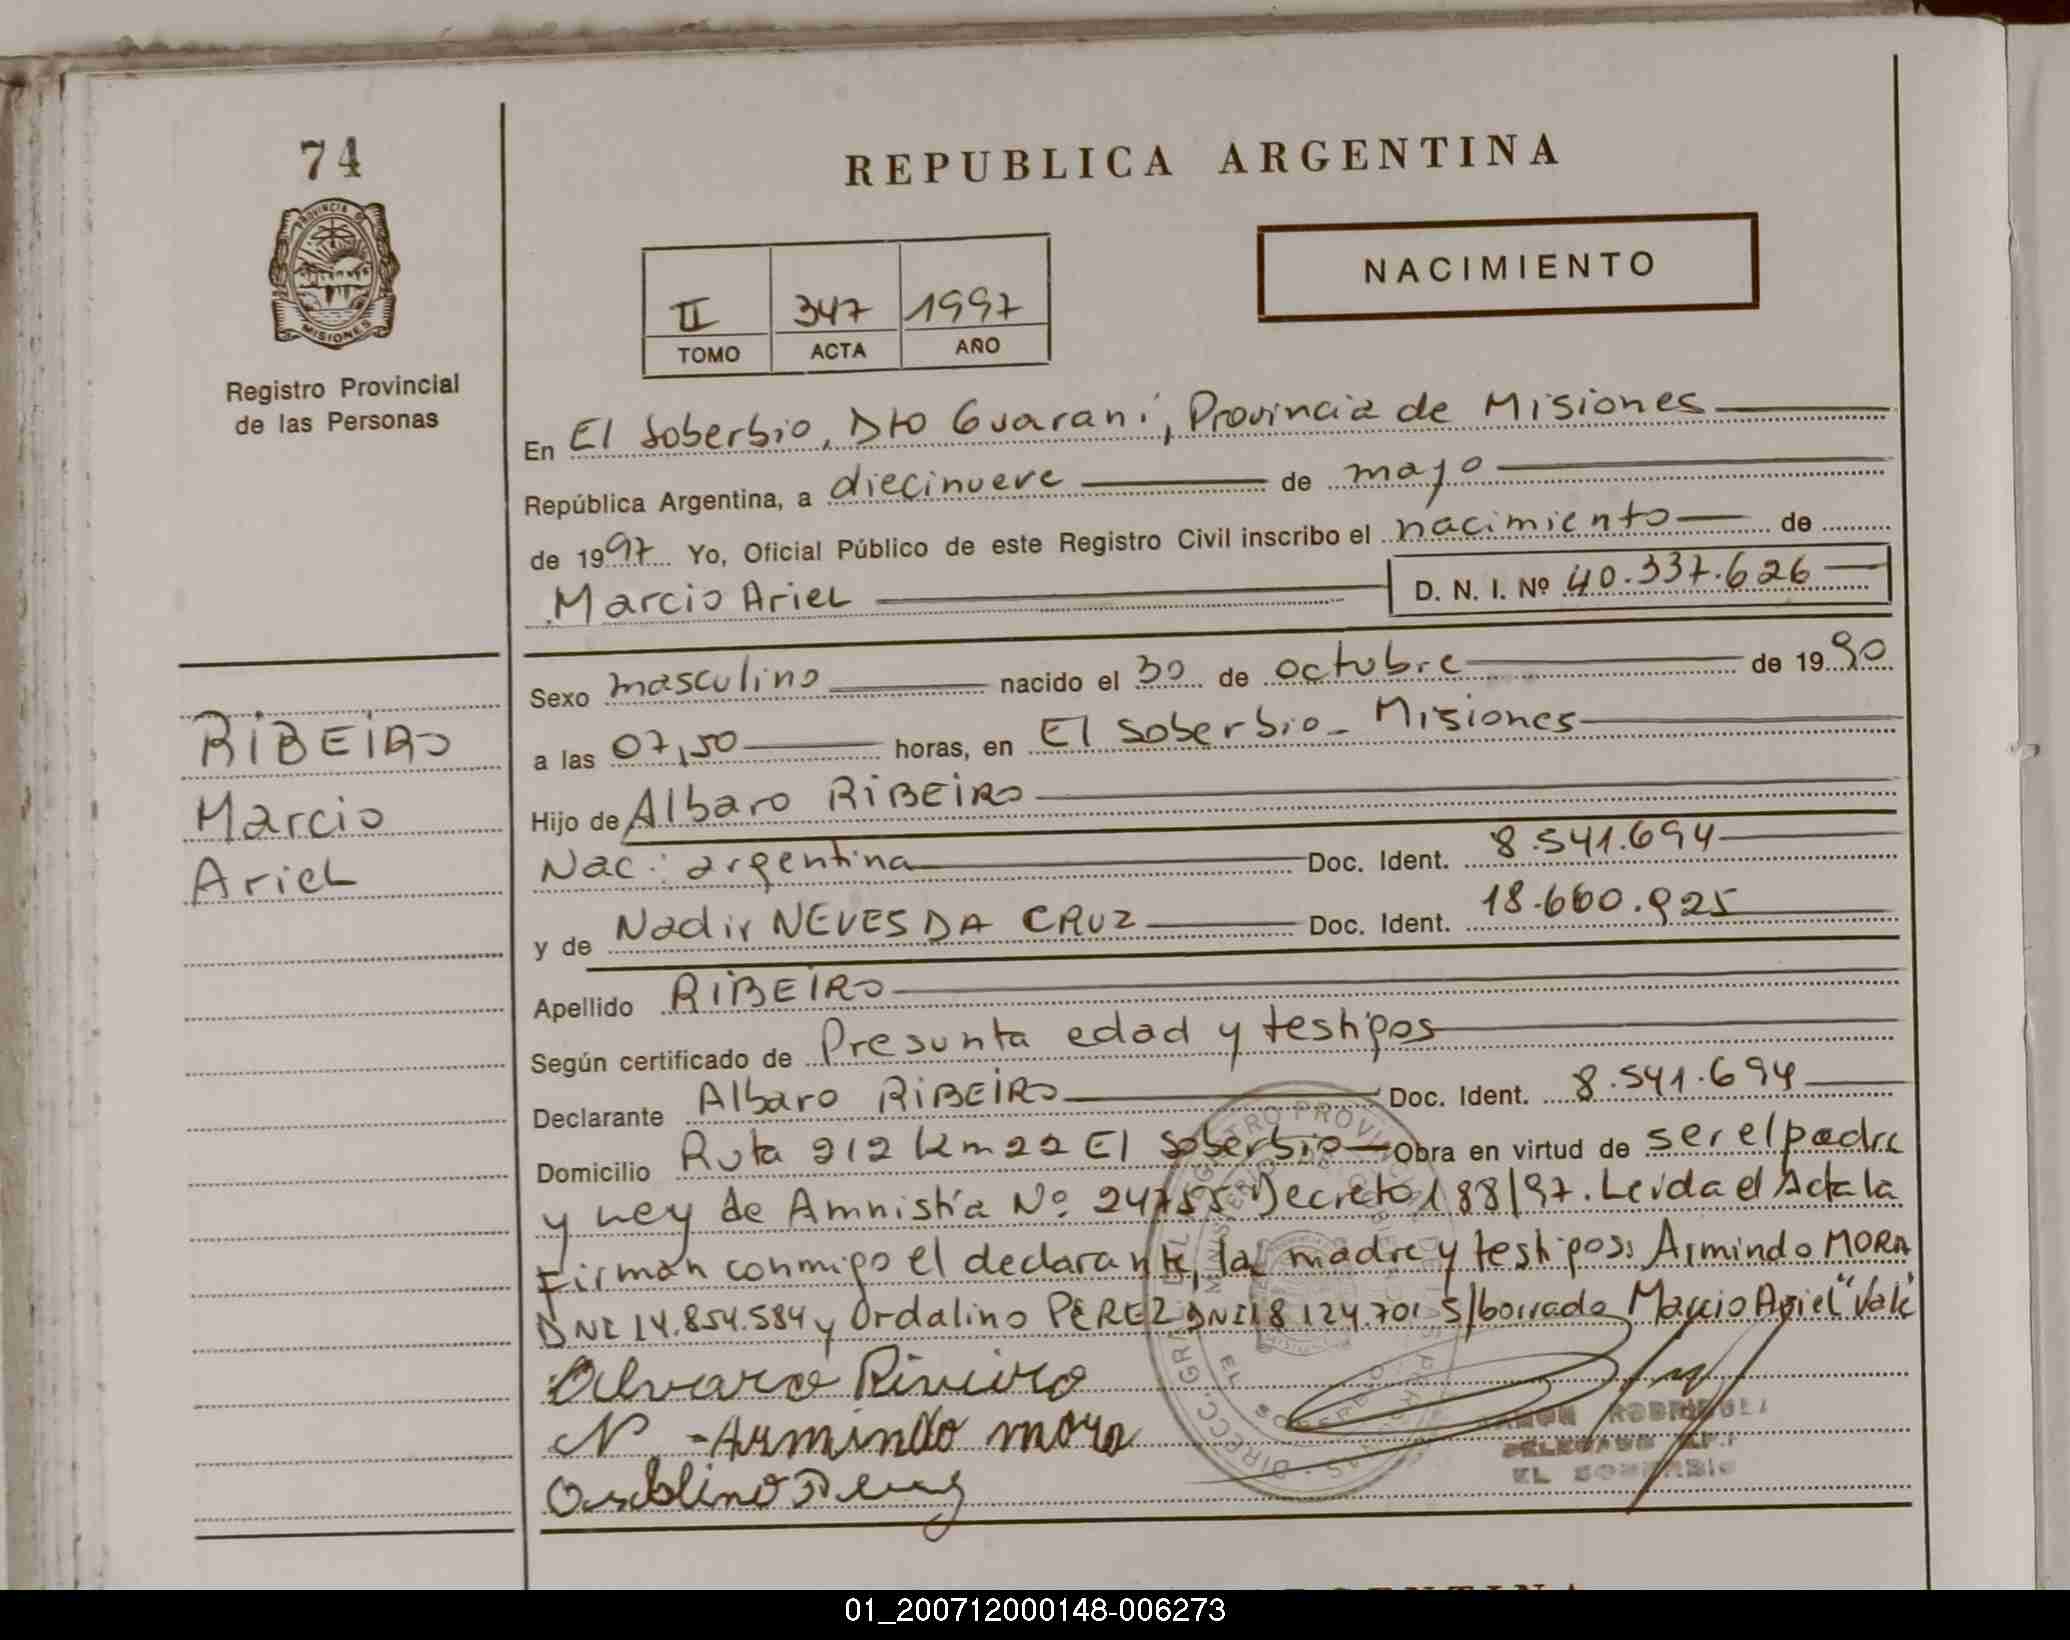 74
PROVINCIA DE
MISIONES
Registro Provincial
de las Personas
RIBEIRO
Marcio
Ariel
REPUBLICA ARGENTINA
NACIMIENTO
II 347 1997
TOMO ACTA AÑO
En El Soberbio, Dto Guaraní, Provincia de Misiones
República Argentina, a diecinueve de mayo
de 1997 Yo, Oficial Público de este Registro Civil inscribo el nacimiento de
Marcio Ariel D. N. I. Nº 40.337.626
Sexo masculino nacido el 30 de octubre de 1990
a las 07,50 horas, en El Soberbio - Misiones
Hijo de Albaro RIBEIRO
Nac: argentina Doc. Ident. 8.541.694
y de Nadir NEVES DA CRUZ Doc. Ident. 18.660.925
Apellido RIBEIRO
Según certificado de Presunta edad y testigos
Declarante Albaro RIBEIRO Doc. Ident. 8.541.694
Domicilio Ruta 212 km 22 El Soberbio Obra en virtud de ser el padre
y Ley de Amnistía Nº 24755 Decreto 188/97. Leida el Acta la
Firman conmigo el declarante, la madre y testigos: Armindo MORA
DNI 14.854.584 y Ordalino PEREZ DNI 18.124.701 S/borrado Marcio Ariel "Vale"
Alvaro Riveiro
N. - Armindo mora
RAMON RODRIGUEZ
EL SOBERBIO
01_200712000148-006273